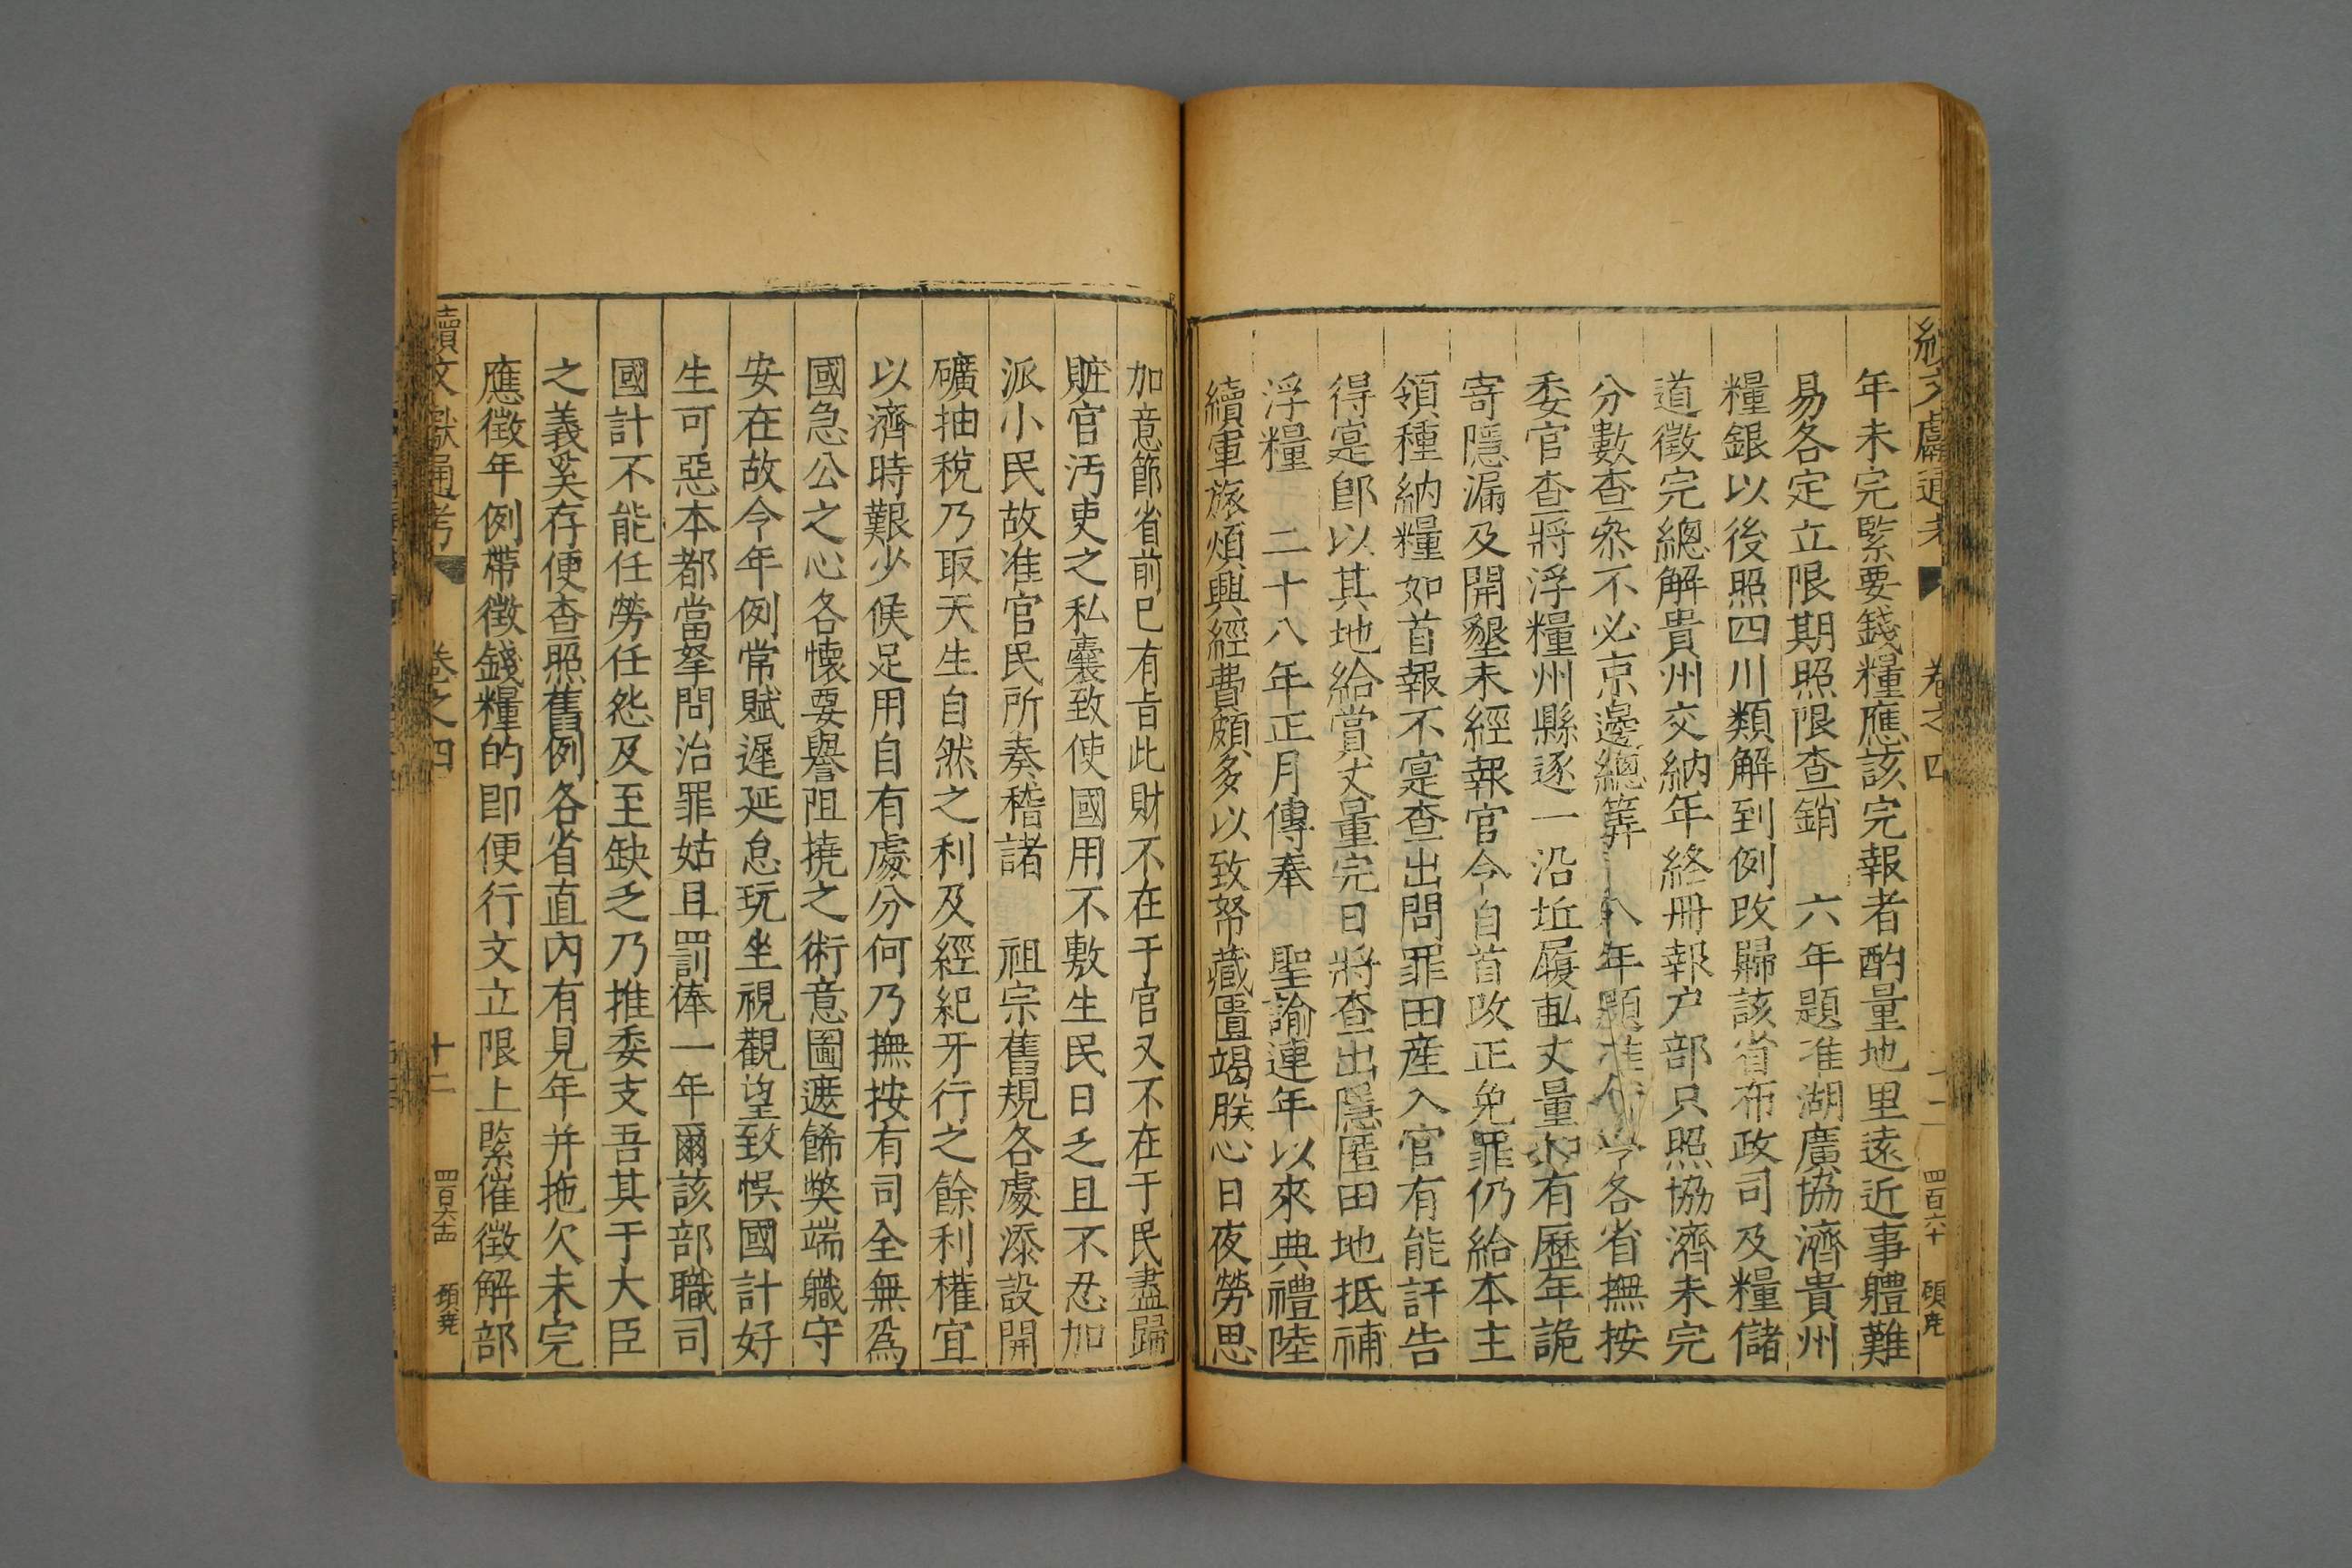 續文獻通考 卷之四 四百六十 顧堯
年未完緊要錢糧應該完報者酌量地里遠近事體難
易各定立限期照限查銷 六年題准湖廣協濟貴州
糧銀以後照四川類解到例改歸該省布政司及糧儲
道徵完總解貴州交納年終冊報户部只照協濟未完
分數查叅不必京邊總筭 八年題准 各省撫按
委官查將浮糧州縣逐一沿坵履畝丈量 有歷年詭
寄隱漏及開墾未經報官令自首改正免罪仍給本主
領種納糧如首報不寔查出問罪田産入官有能訐告
得寔卽以其地給賞丈量完日將查出隱匿田地抵補
浮糧 二十八年正月傳奉 聖諭連年以來典禮陸
續軍旅煩興經費頗多以致帑藏匱竭朕心日夜勞思
加意節省前已有旨此財不在于官又不在于民盡歸
賍官汚吏之私囊致使國用不敷生民日乏且不忍加
派小民故准官民所奏稽諸 祖宗舊規各處添設開
礦抽稅乃取天生自然之利及經紀牙行之餘利權宜
以濟時艱少候足用自有處分何乃撫按有司全無爲
國急公之心各懷要譽阻撓之術意圖遮餙獘端職守
安在故今年例常賦遲延怠玩坐視觀望致悞國計好
生可惡本都當拏問治罪姑且罰俸一年爾該部職司
國計不能任勞任怨及至缺乏乃推委支吾其于大臣
之義奚存便查照舊例各省直內有見年并拖欠未完
應徵年例帶徵錢糧的卽便行文立限上緊催徵解部
續文獻通考 卷之四 十二 四百六十 顧堯